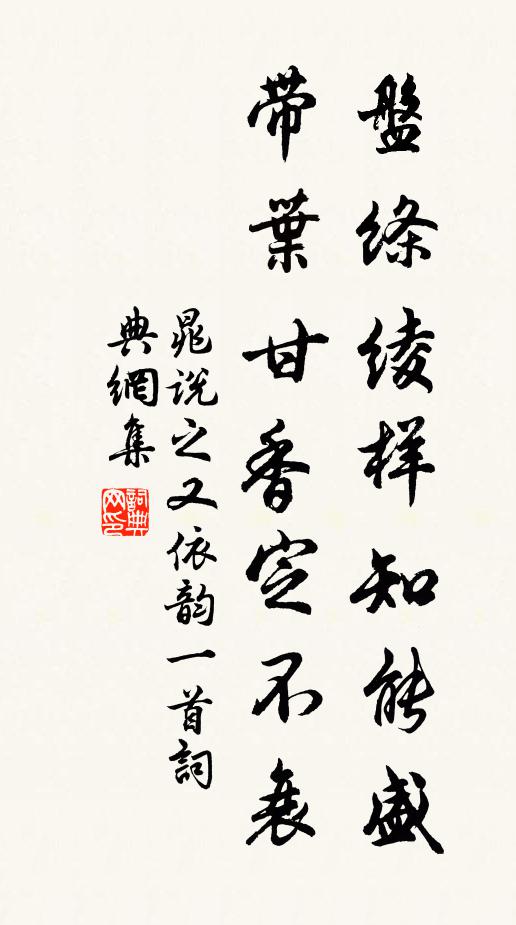 盤絛綾样知能盛
帶葉甘香定不衰
晁說之又依韵一首詞
典網集
詞典网印